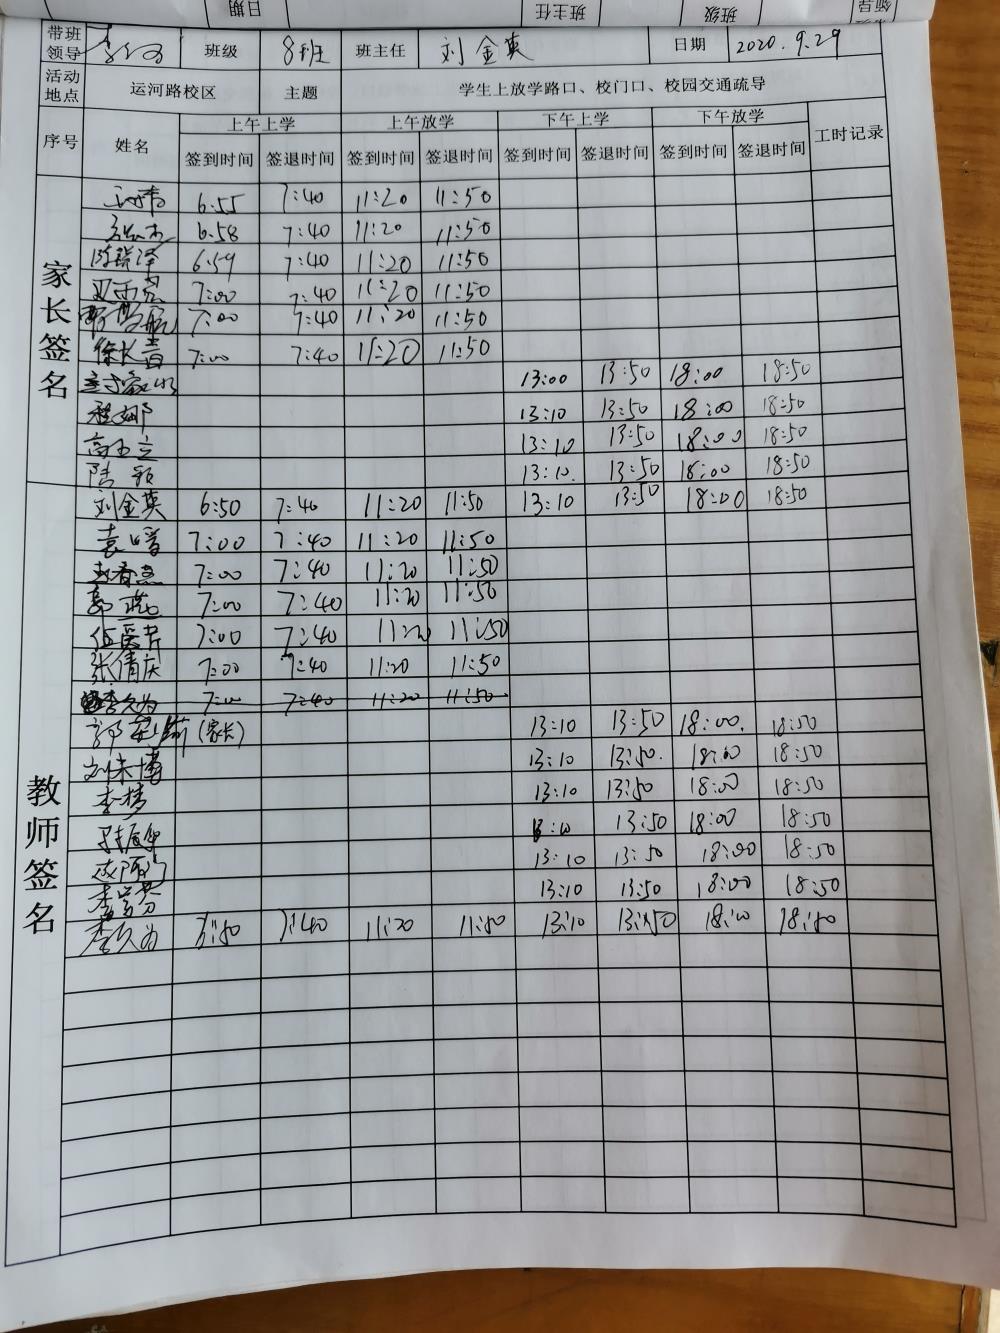 日期 班主任 班级 领导
带班领导 班级 8班 班主任 刘金英 日期 2020.9.29
活动地点 运河路校区 主题 学生上放学路口、校门口、校园交通疏导
序号 姓名 上午上学 上午放学 下午上学 下午放学 工时记录
签到时间 签退时间 签到时间 签退时间 签到时间 签退时间 签到时间 签退时间
家长签名
6:55 7:40 11:20 11:50
6:58 7:40 11:20 11:50
陈瑞泽 6:59 7:40 11:20 11:50
7:00 7:40 11:20 11:50
7:00 7:40 11:20 11:50
徐长青 7:00 7:40 11:20 11:50
13:00 13:50 18:00 18:50
程娜 13:10 13:50 18:00 18:50
高玉立 13:10 13:50 18:00 18:50
陆颖 13:10. 13:50 18:00 18:50
教师签名
刘金英 6:50 7:40 11:20 11:50 13:10 13:50 18:00 18:50
7:00 7:40 11:20 11:50
7:00 7:40 11:20 11:50
7:00 7:40 11:20 11:50
伍爱芹 7:00 7:40 11:20 11:50
张倩庆 7:00 7:40 11:20 11:50
李久为 7:00 7:40 11:20 11:50
(家长) 13:10 13:50 18:00. 18:50
刘朱博 13:10 13:50. 18:00 18:50
李梦 13:10 13:50 18:00 18:50
13:10 13:50 18:00 18:50
13:10 13:50 18:00 18:50
13:10 13:50 18:00 18:50
李久为 7:40 11:20 11:50 13:10 13:50 18:10 18:50